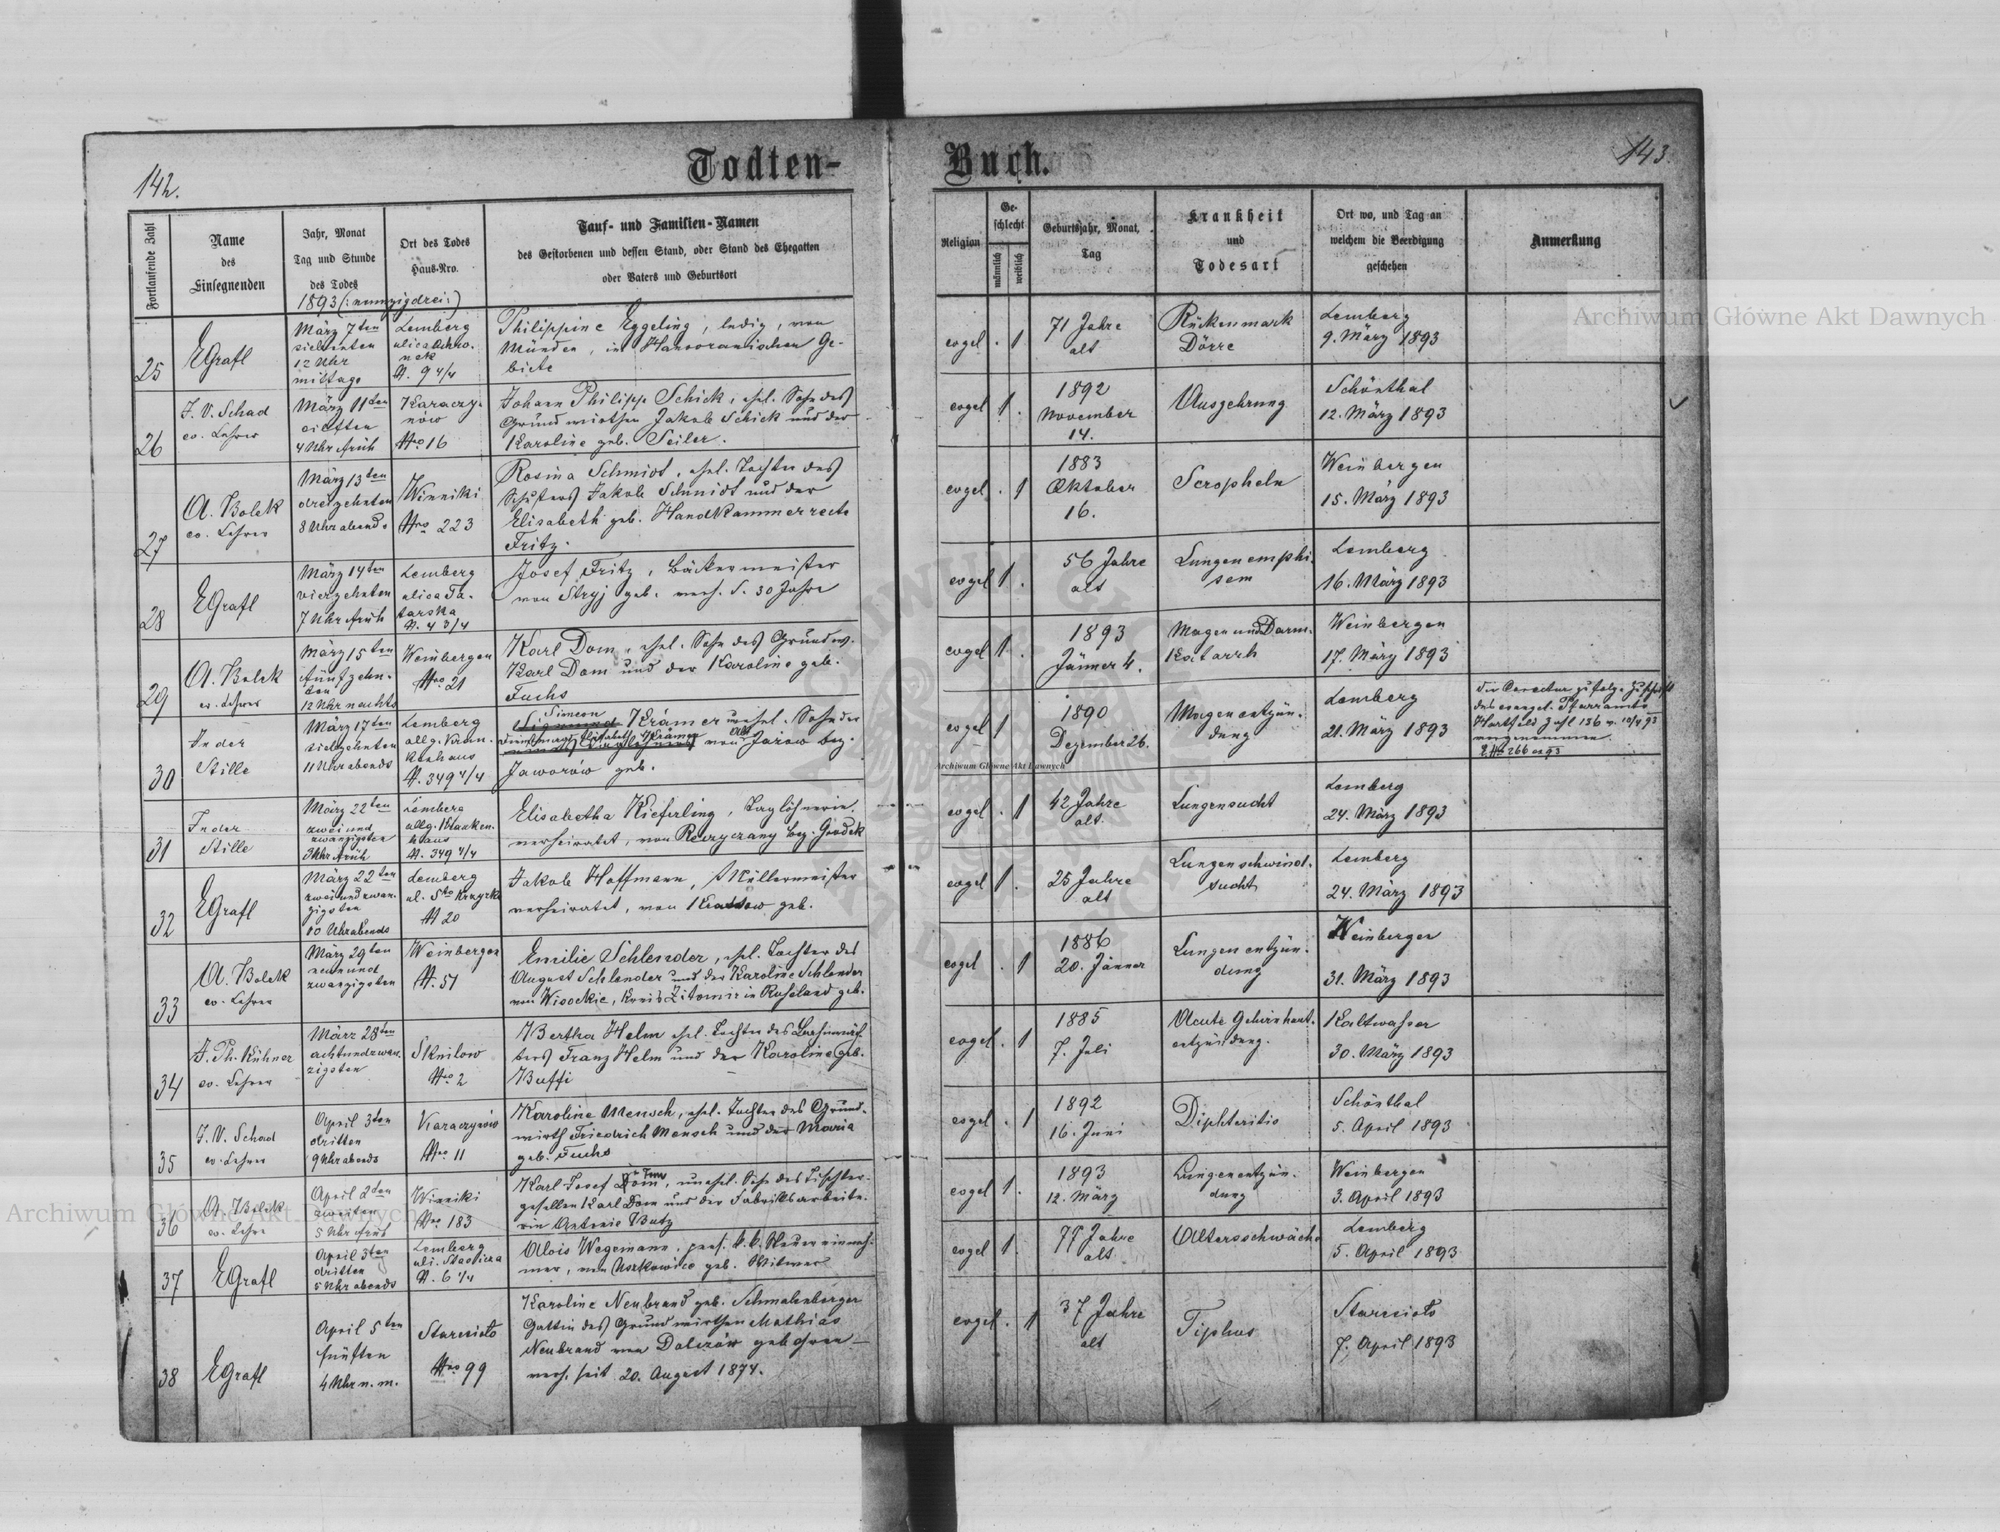 142.
Todten-
Fortlaufende Zahl
Name
des
Einsegnenden
Jahr, Monat
Tag und Stunde
des Todes
Ort des Todes
Haus-Nro.
Tauf- und Familien-Namen
des Gestorbenen und dessen Stand, oder Stand des Ehegatten
oder Vaters und Geburtsort
1893 (: neunzigdrei :)
25
EGrafl
März 7ten
siebenten
12 Uhr
mittags
Lemberg
N. 9 4/4
Philippine Eggeling, ledig, von
Münden, im Hannoranischen Ge-
biete
26
J. V. Schad
ev. Lehrer
März 11ten
eilften
4 Uhr früh
Karaczy-
nów
Nro 16
Johann Philipp Schick, ehel. Sohn des
Grundwirthen Jakob Schick und der
Karoline geb. Seiler.
27
A. Bolek
ev. Lehrer
März 13ten
dreizehnten
8 Uhr abends
Winniki
Nro 223
Rosina Schmidt, ehel. Tochter des
Schusters Jakob Schmidt und der
Elisabeth geb. Handkammer recte
Fritz.
28
EGrafl
März 14ten
vierzehnten
7 Uhr früh
Lemberg
ulica Ta-
tarska
N. 4 3/4
Josef Fritz, Bäckermeister
von Stryj geb. verh. s. 30 Jahre
29
A. Bolek
ev. Lehrer
März 15ten
fünfzehn-
ten
12 Uhr nachts
Weinbergen
Nro 21
Karl Dom, ehel. Sohn des Grundw.
Karl Dom und der Karoline geb.
Fuchs
30
In der
Stille
März 17ten
siebzehnten
11 Uhr abends
Lemberg
allg. Kran-
kenhaus
N. 349 4/4
Simeon
Sigmund Krämer unehel. Sohn der
Dienstmagd Elisabeth Krämer
von Jazow bez.
Jaworów geb.
31
In der
Stille
März 22ten
zwei und
zwanzigsten
3 Uhr früh
Lemberg
allg. Kranken-
haus
N. 349 4/4
Elisabetha Kieferling, Taglöhnerin,
verheiratet, von Rzeczyczany bez. Grodek
32
EGrafl
März 22ten
zwei und zwan-
zigsten
10 Uhr abends
Lemberg
N 20
Jakob Hoffmann, Müllermeister
verheiratet, von geb.
33
A. Bolek
ev. Lehrer
März 29ten
neun und
zwanzigsten
Weinbergen
N. 51
Emilie Schlender, ehel. Tochter des
August Schlender und der Karoline Schlender
von Wisockie, Kreis Zitomir in Rußland geb.
34
J. Ph. Kühner
ev. Lehrer
März 28ten
achtundzwan-
zigsten
Sknilow
Nro 2
Bertha Helm ehel. Tochter des
Franz Helm und der Karoline geb.
Buffi
35
J. V. Schad
ev. Lehrer
April 3ten
dritten
9 Uhr abends
Karaczynów
Nro 11
Karoline Mensch, ehel. Tochter des Grund-
wirth Friedrich Mensch und der Maria
geb. Fuchs
36
A. Bolek
ev. Lehrer
April 2ten
zweiten
5 Uhr früh
Winniki
Nro 183
Karl Josef Dom, unehel. Sohn des Tischler-
gesellen Karl Dom und der Fabriksarbeite-
rin Antonie Butz
37
EGrafl
April 3ten
dritten
5 Uhr abends
Lemberg
N. 6 1/4
Alois Wegemann, pens. k. k. Steuereinneh-
mer, von geb. Witwer
38
EGrafl
April 5ten
fünften
4 Uhr n. m.
Nro 99
Karoline Neubrand geb. Schmalenberger
Gattin des Grundwirthen Mathias
Neubrand von Dolizów geboren —
verh. seit 20. August 1874.
Buch.
143.
Religion
Ge-
schlecht
männlich
weiblich
Geburtsjahr, Monat,
Tag
Krankheit
und
Todesart
Ort wo, und Tag an
welchem die Beerdigung
geschehen
Anmerkung
evgel . 1
71 Jahre
alt
Rückenmark
Dörre
Lemberg
9. März 1893
evgel 1 .
1892
November
14.
Auszehrung
Schönthal
12. März 1893
evgel . 1
1883
Oktober
16.
Scropheln
Weinbergen
15. März 1893
evgel 1 .
56 Jahre
alt
Lungenemphi-
sem
Lemberg
16. März 1893
evgel 1 .
1893
Jänner 4.
Magen und Darm-
Katarrh
Weinbergen
17. März 1893
evgel 1
1890
Dezember 26.
Magenentzün-
dung
Lemberg
21. März 1893
des evangel. Pfarramts
Hartfeld Zahl 136 v.
vorgenommen.
evgel . 1
42 Jahre
alt.
Lungensucht
Lemberg
24. März 1893
evgel 1 .
25 Jahre
alt
Lungenschwind-
sucht
Lemberg
24. März 1893
evgel . 1
1886
20. Jänner
Lungenentzün-
dung
Weinbergen
31. März 1893
evgel . 1
1885
7. Juli
Acute Gehirnhaut-
entzündung.
Kaltwasser
30. März 1893
evgel . 1
1892
16. Juni
Diphteritis
Schönthal
5. April 1893
evgel 1 .
1893
12. März
Lungenentzün-
dung
Weinbergen
3. April 1893
evgel 1 .
77 Jahre
alt.
Altersschwäche
Lemberg
5. April 1893
evgel . 1
37 Jahre
alt
Tiphus
7. April 1893
Archiwum Główne Akt Dawnych
Archiwum Główne Akt Dawnych
Archiwum Główne Akt Dawnych
Archiwum Główne Akt Dawnych